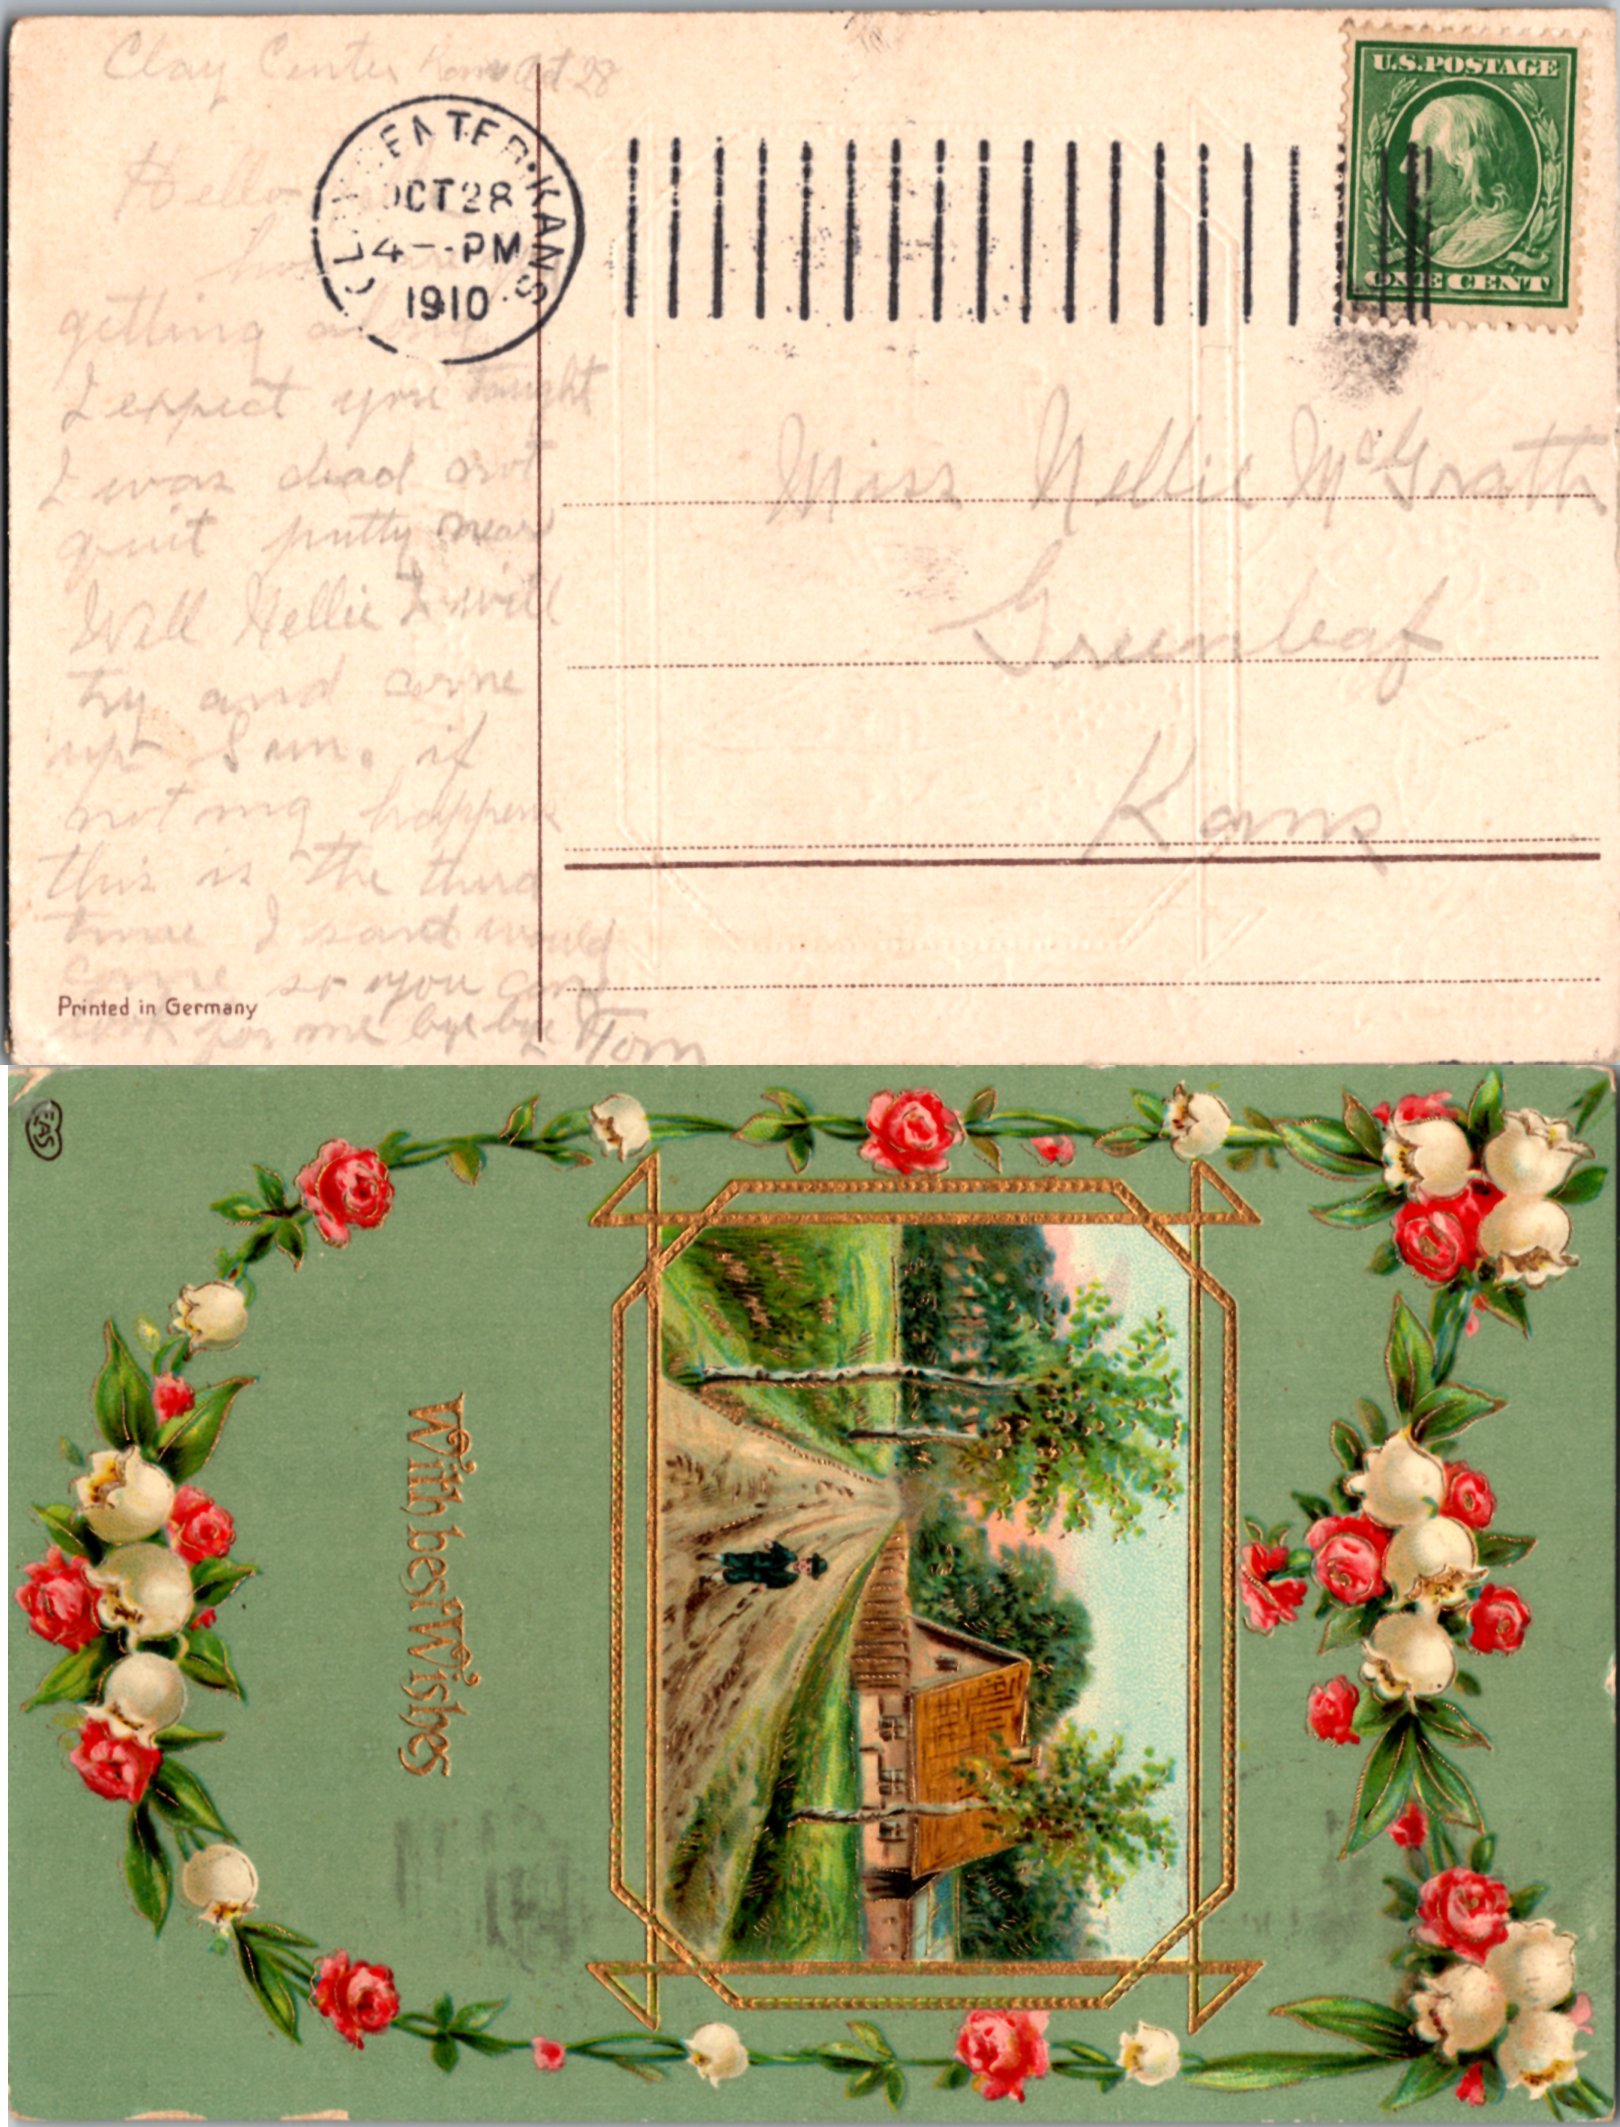 Clay Center Kans Oct 28
CLAY CENTER. KANS.
OCT 28
4 - PM
1910
U.S. POSTAGE
ONE CENT
Hello
how
getting along
I expect you taught
I was dead not
quit putty near
Well Nellie I will
try and come
up Sun. if
noting happens
this is the third
time I said would
come so you can
look for me bye bye
Tom
Miss Nellie McGrath
Greenleaf
Kans
Printed in Germany
EAS
With best Wishes